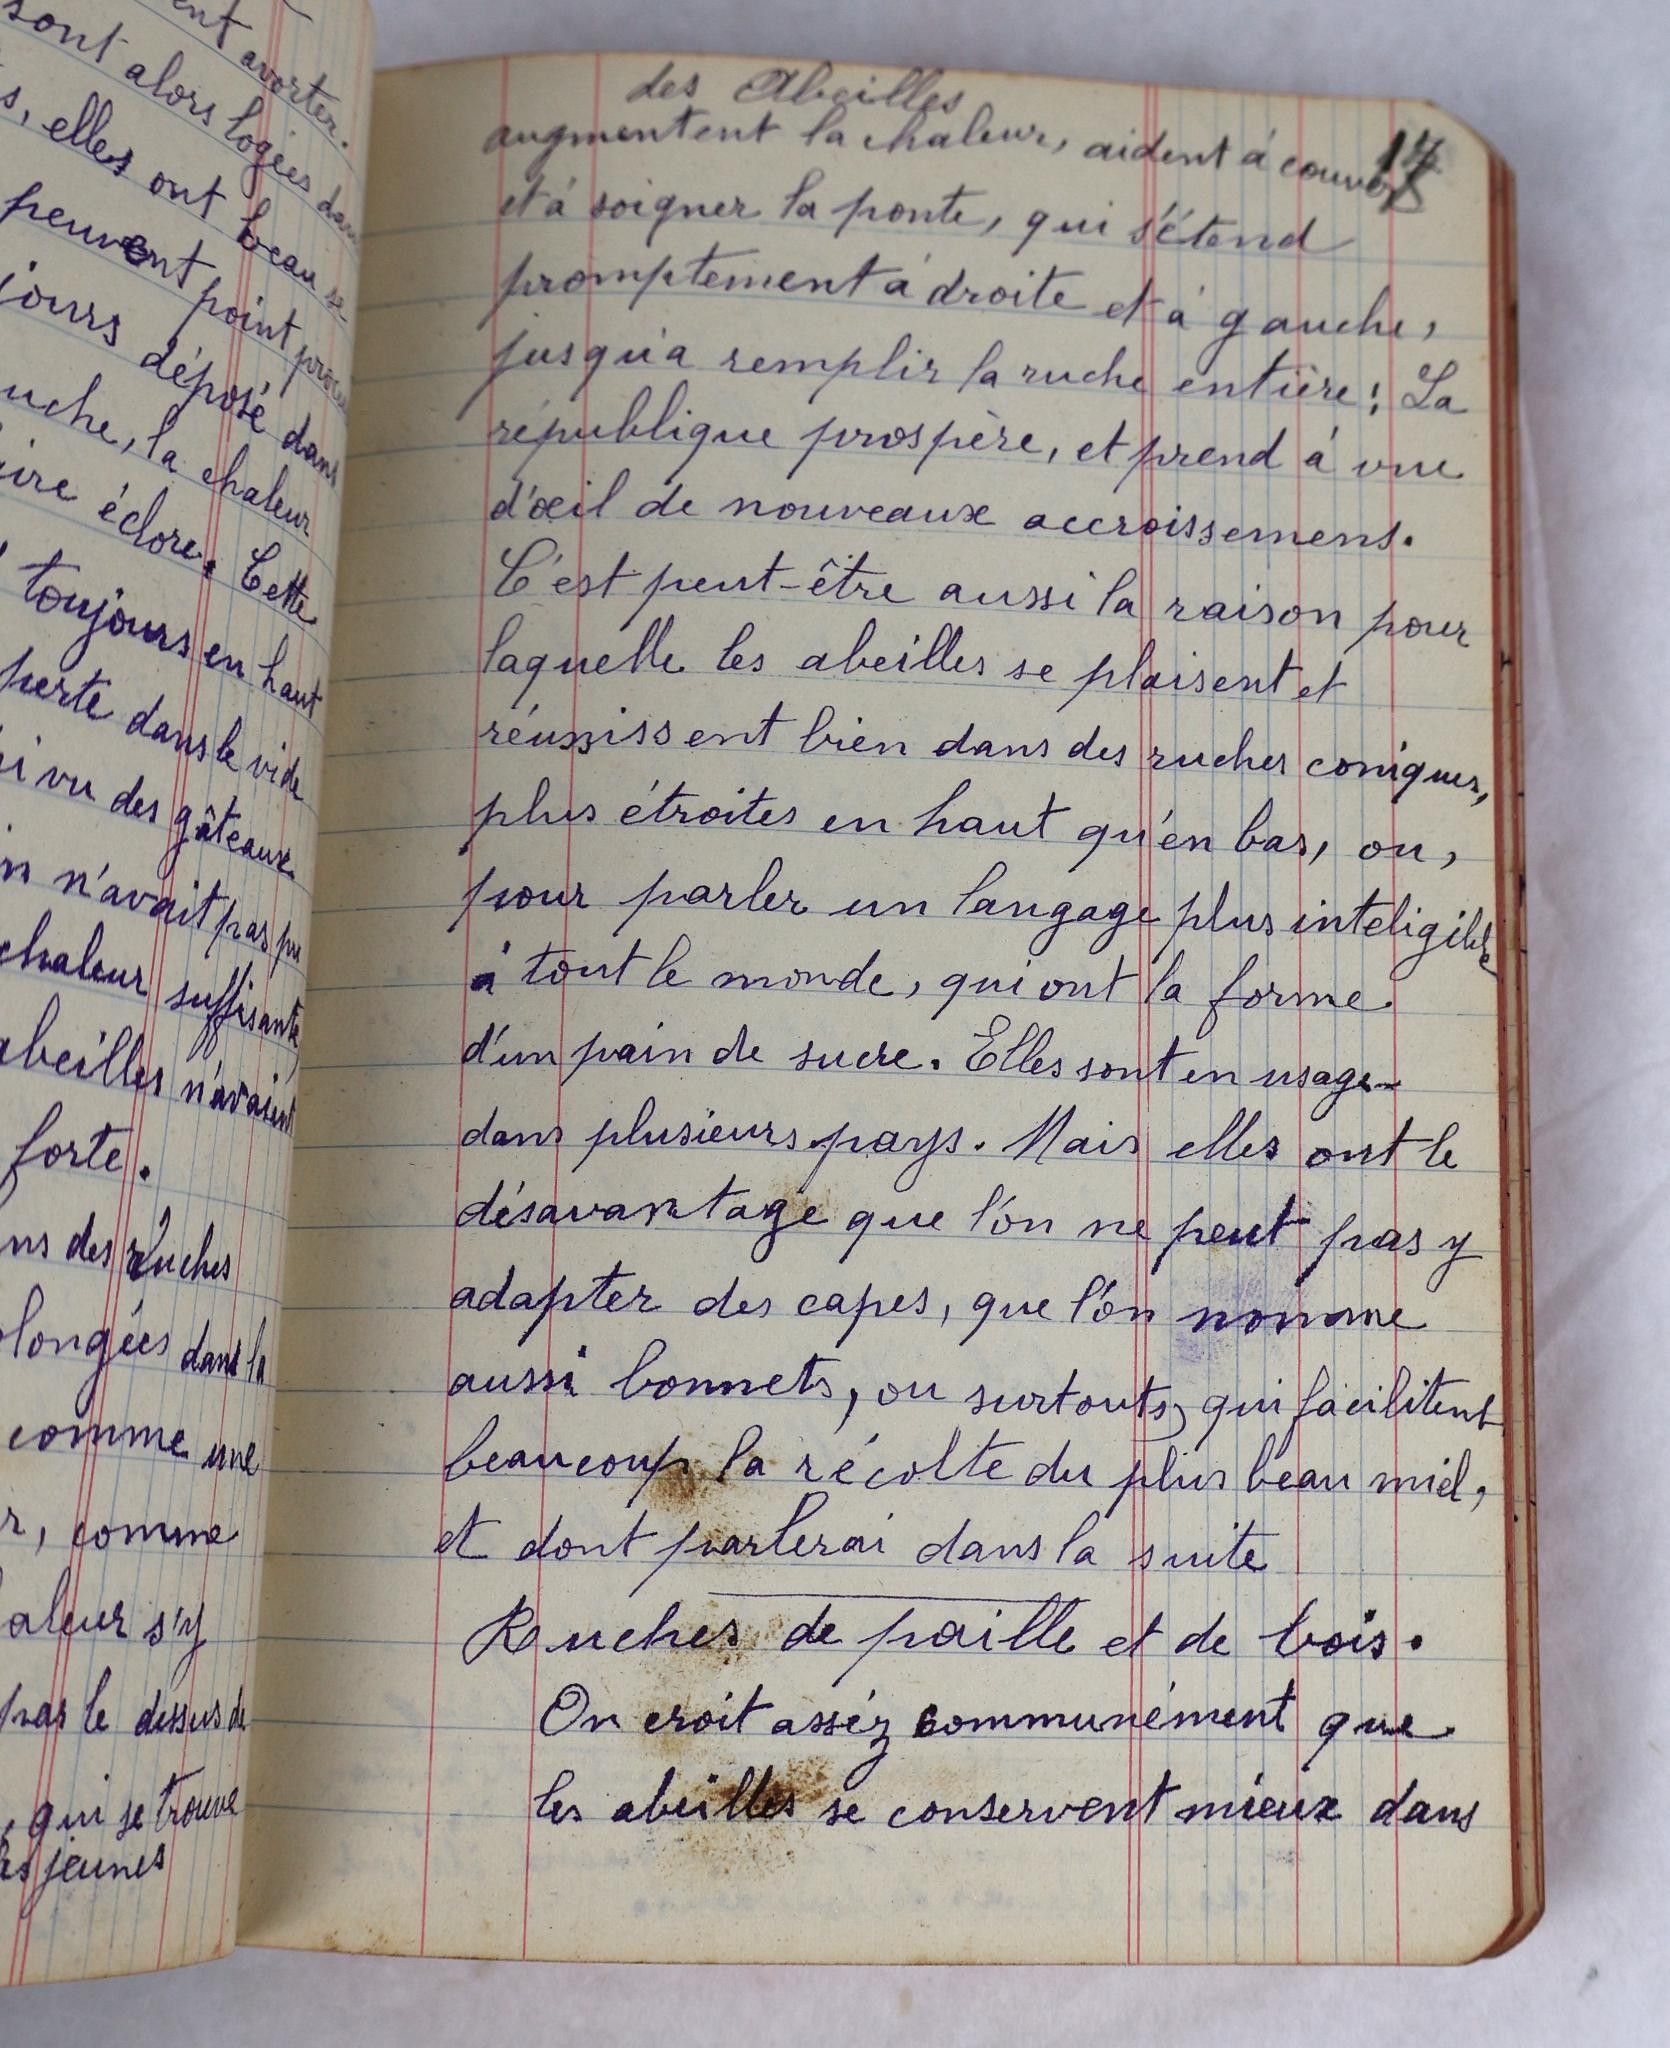 ent avorter.
sont alors logées dans
s, elles ont beau se
peuvent point
jours déposé dans
uche, la chaleur
ire éclore. Cette
toujours en haut
perte dans le vide
i vu des gâteaux
n n'avait pas pu
chaleur suffisante,
abeilles n'avaient
forte.
ns des Ruches
longées dans la
comme une
r, comme
aleur s'y
pas le dessus de
, qui se trouve
les jeunes
des Abeilles
17
augmentent la chaleur, aident à couver
et à soigner la ponte, qui s'étend
promptement à droite et à gauche,
jusqu'a remplir la ruche entière! La
république prospère, et prend à vue
d'œil de nouveaux accroissemens.
C'est peut-être aussi la raison pour
laquelle les abeilles se plaisent et
réussissent bien dans des ruches coniques,
plus étroites en haut qu'en bas, ou,
pour parler un langage plus inteligible
à tout le monde, qui ont la forme
d'un pain de sucre. Elles sont en usage
dans plusieurs pays. Mais elles ont le
désavantage que l'on ne peut pas y
adapter des capes, que l'on nomme
aussi bonnets, ou surtouts, qui facilitent
beaucoup la récolte du plus beau miel,
et dont parlerai dans la suite
Ruches de paille et de bois.
On croit asséz communément que
les abeilles se conservent mieux dans